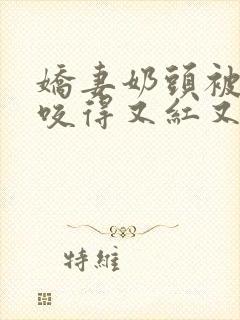 嬌妻奶頭被
咬得又紅又
特維